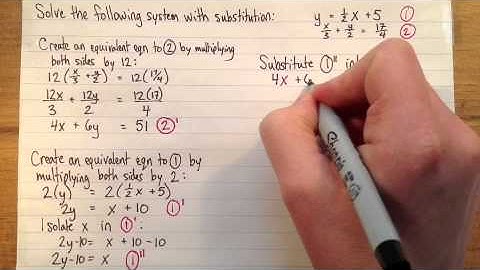 Solve the following system with substitution:
y = 1/2 x + 5 ①
x/3 + y/2 = 17/4 ②
Create an equivalent eqn to ② by multiplying
both sides by 12:
12(x/3 + y/2) = 12(17/4)
12x/3 + 12y/2 = 12(17)/4
4x + 6y = 51 ②'
Create an equivalent eqn to ① by
multiplying both sides by 2:
2(y) = 2(1/2 x + 5)
2y = x + 10 ①'
Isolate x in ①':
2y-10 = x + 10 - 10
2y-10 = x ①"
Substitute ①" in
4x + 6